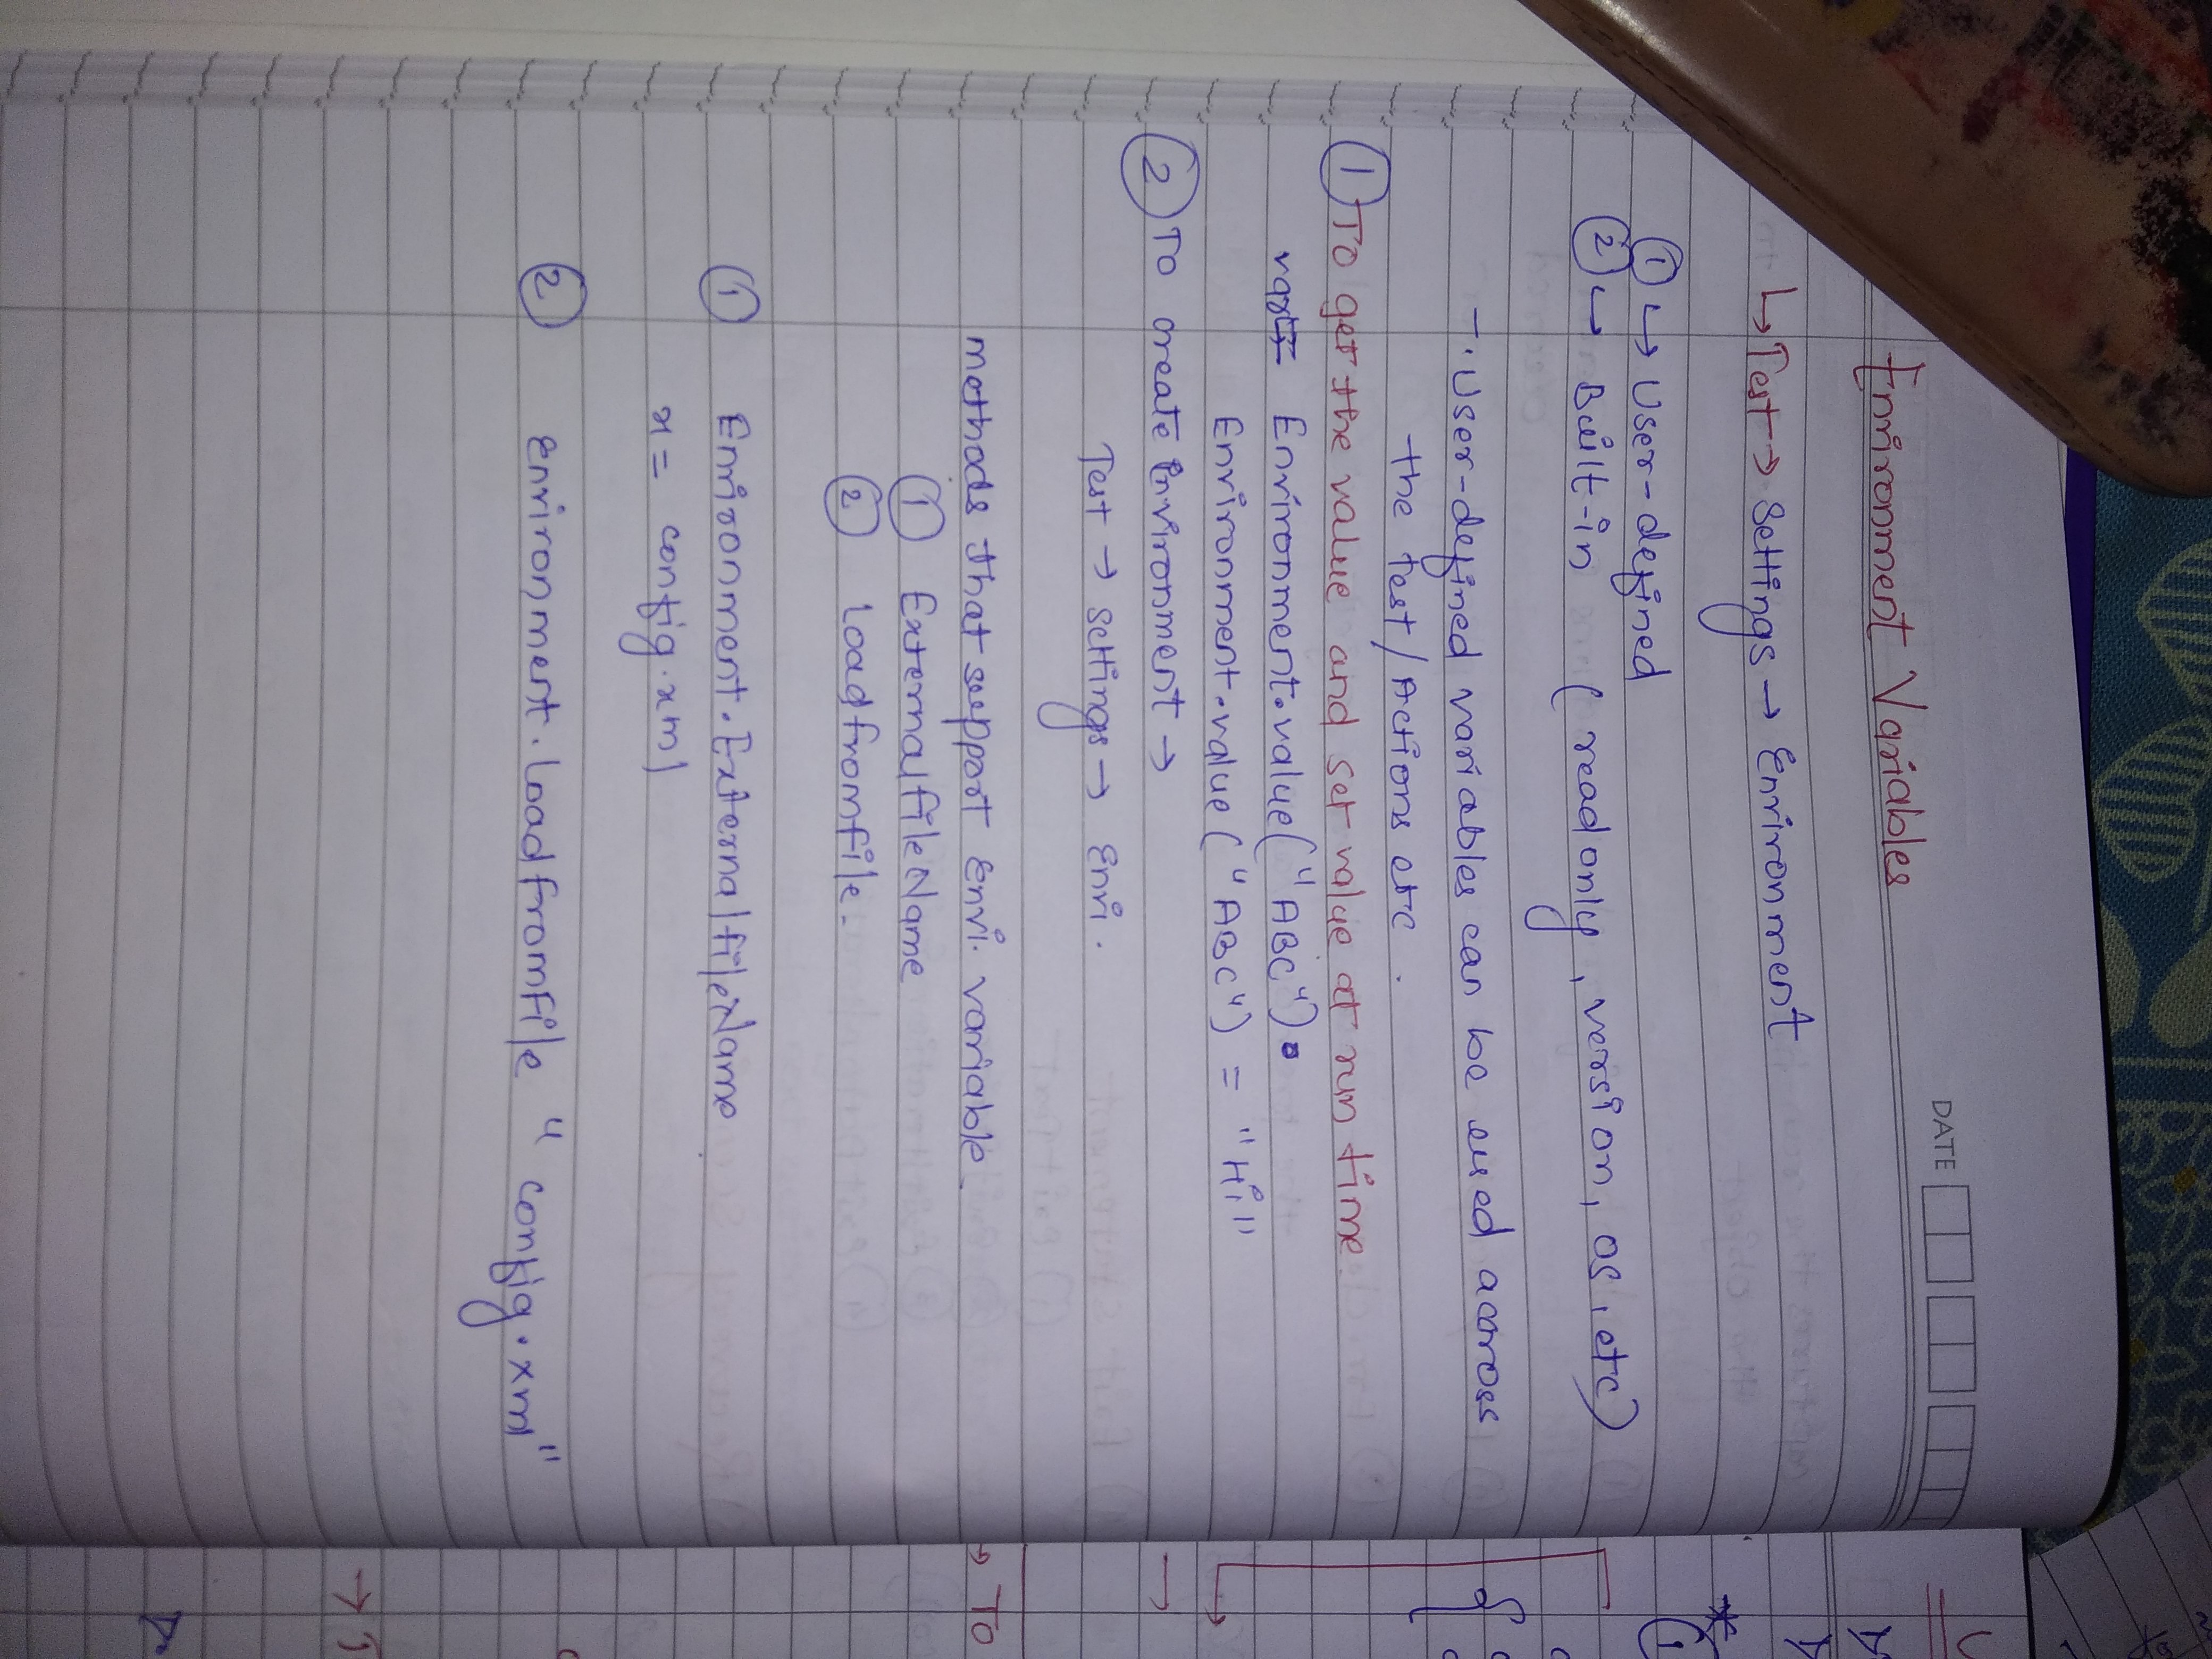 Environment Variables
DATE
↳ Test → Settings → Environment
① ↳ User-defined
② ↳ Built-in (read only, version, os, etc)
- . User-defined variables can be used across
the Test/Actions etc.
① To get the value and set value at run time
Environment.value("ABC").
Environment.value("ABC") = "Hi"
② To create Environment →
Test → settings → Envi.
methods that support Envi. variable.
① ExternalfileName
② Loadfromfile.
① Environment.ExternalfileName
x = config.xml
② Environment.LoadfromFile "config.xml"
→ To